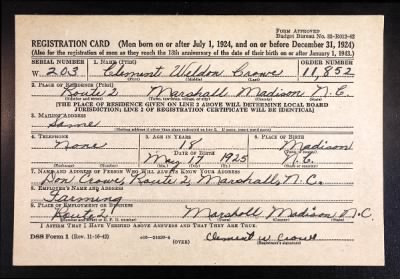 FORM APPROVED
Budget Bureau No. 33-R012-42
REGISTRATION CARD—(Men born on or after July 1, 1924, and on or before December 31, 1924)
(Also for the registration of men as they reach the 18th anniversary of the date of their birth on or after January 1, 1943.)
SERIAL NUMBER 1. NAME (Print) ORDER NUMBER
W. 203 Clement Weldon Crowe 11,852
(First) (Middle) (Last)
2. PLACE OF RESIDENCE (Print)
Route 2 Marshall, Madison N.C.
(Number and street) (Town, township, village, or city) (County) (State)
(THE PLACE OF RESIDENCE GIVEN ON LINE 2 ABOVE WILL DETERMINE LOCAL BOARD
JURISDICTION; LINE 2 OF REGISTRATION CERTIFICATE WILL BE IDENTICAL)
3. MAILING ADDRESS
Same
(Mailing address if other than place indicated on line 2. If same, insert word same)
4. TELEPHONE 5. AGE IN YEARS 6. PLACE OF BIRTH
None 18 Madison
DATE OF BIRTH
May 17 1925 N.C.
(Exchange) (Number) (Mo.) (Day) (Yr.) (State or country)
7. NAME AND ADDRESS OF PERSON WHO WILL ALWAYS KNOW YOUR ADDRESS
Don Crowe, Route 2, Marshall, N.C.
8. EMPLOYER'S NAME AND ADDRESS
Farming
9. PLACE OF EMPLOYMENT OR BUSINESS
Route 2 Marshall Madison N.C.
(Number and street or R. F. D. number) (Town) (County) (State)
I AFFIRM THAT I HAVE VERIFIED ABOVE ANSWERS AND THAT THEY ARE TRUE.
DSS Form 1 (Rev. 11-16-42) (OVER) Clement W Crowe
(Registrant's signature)